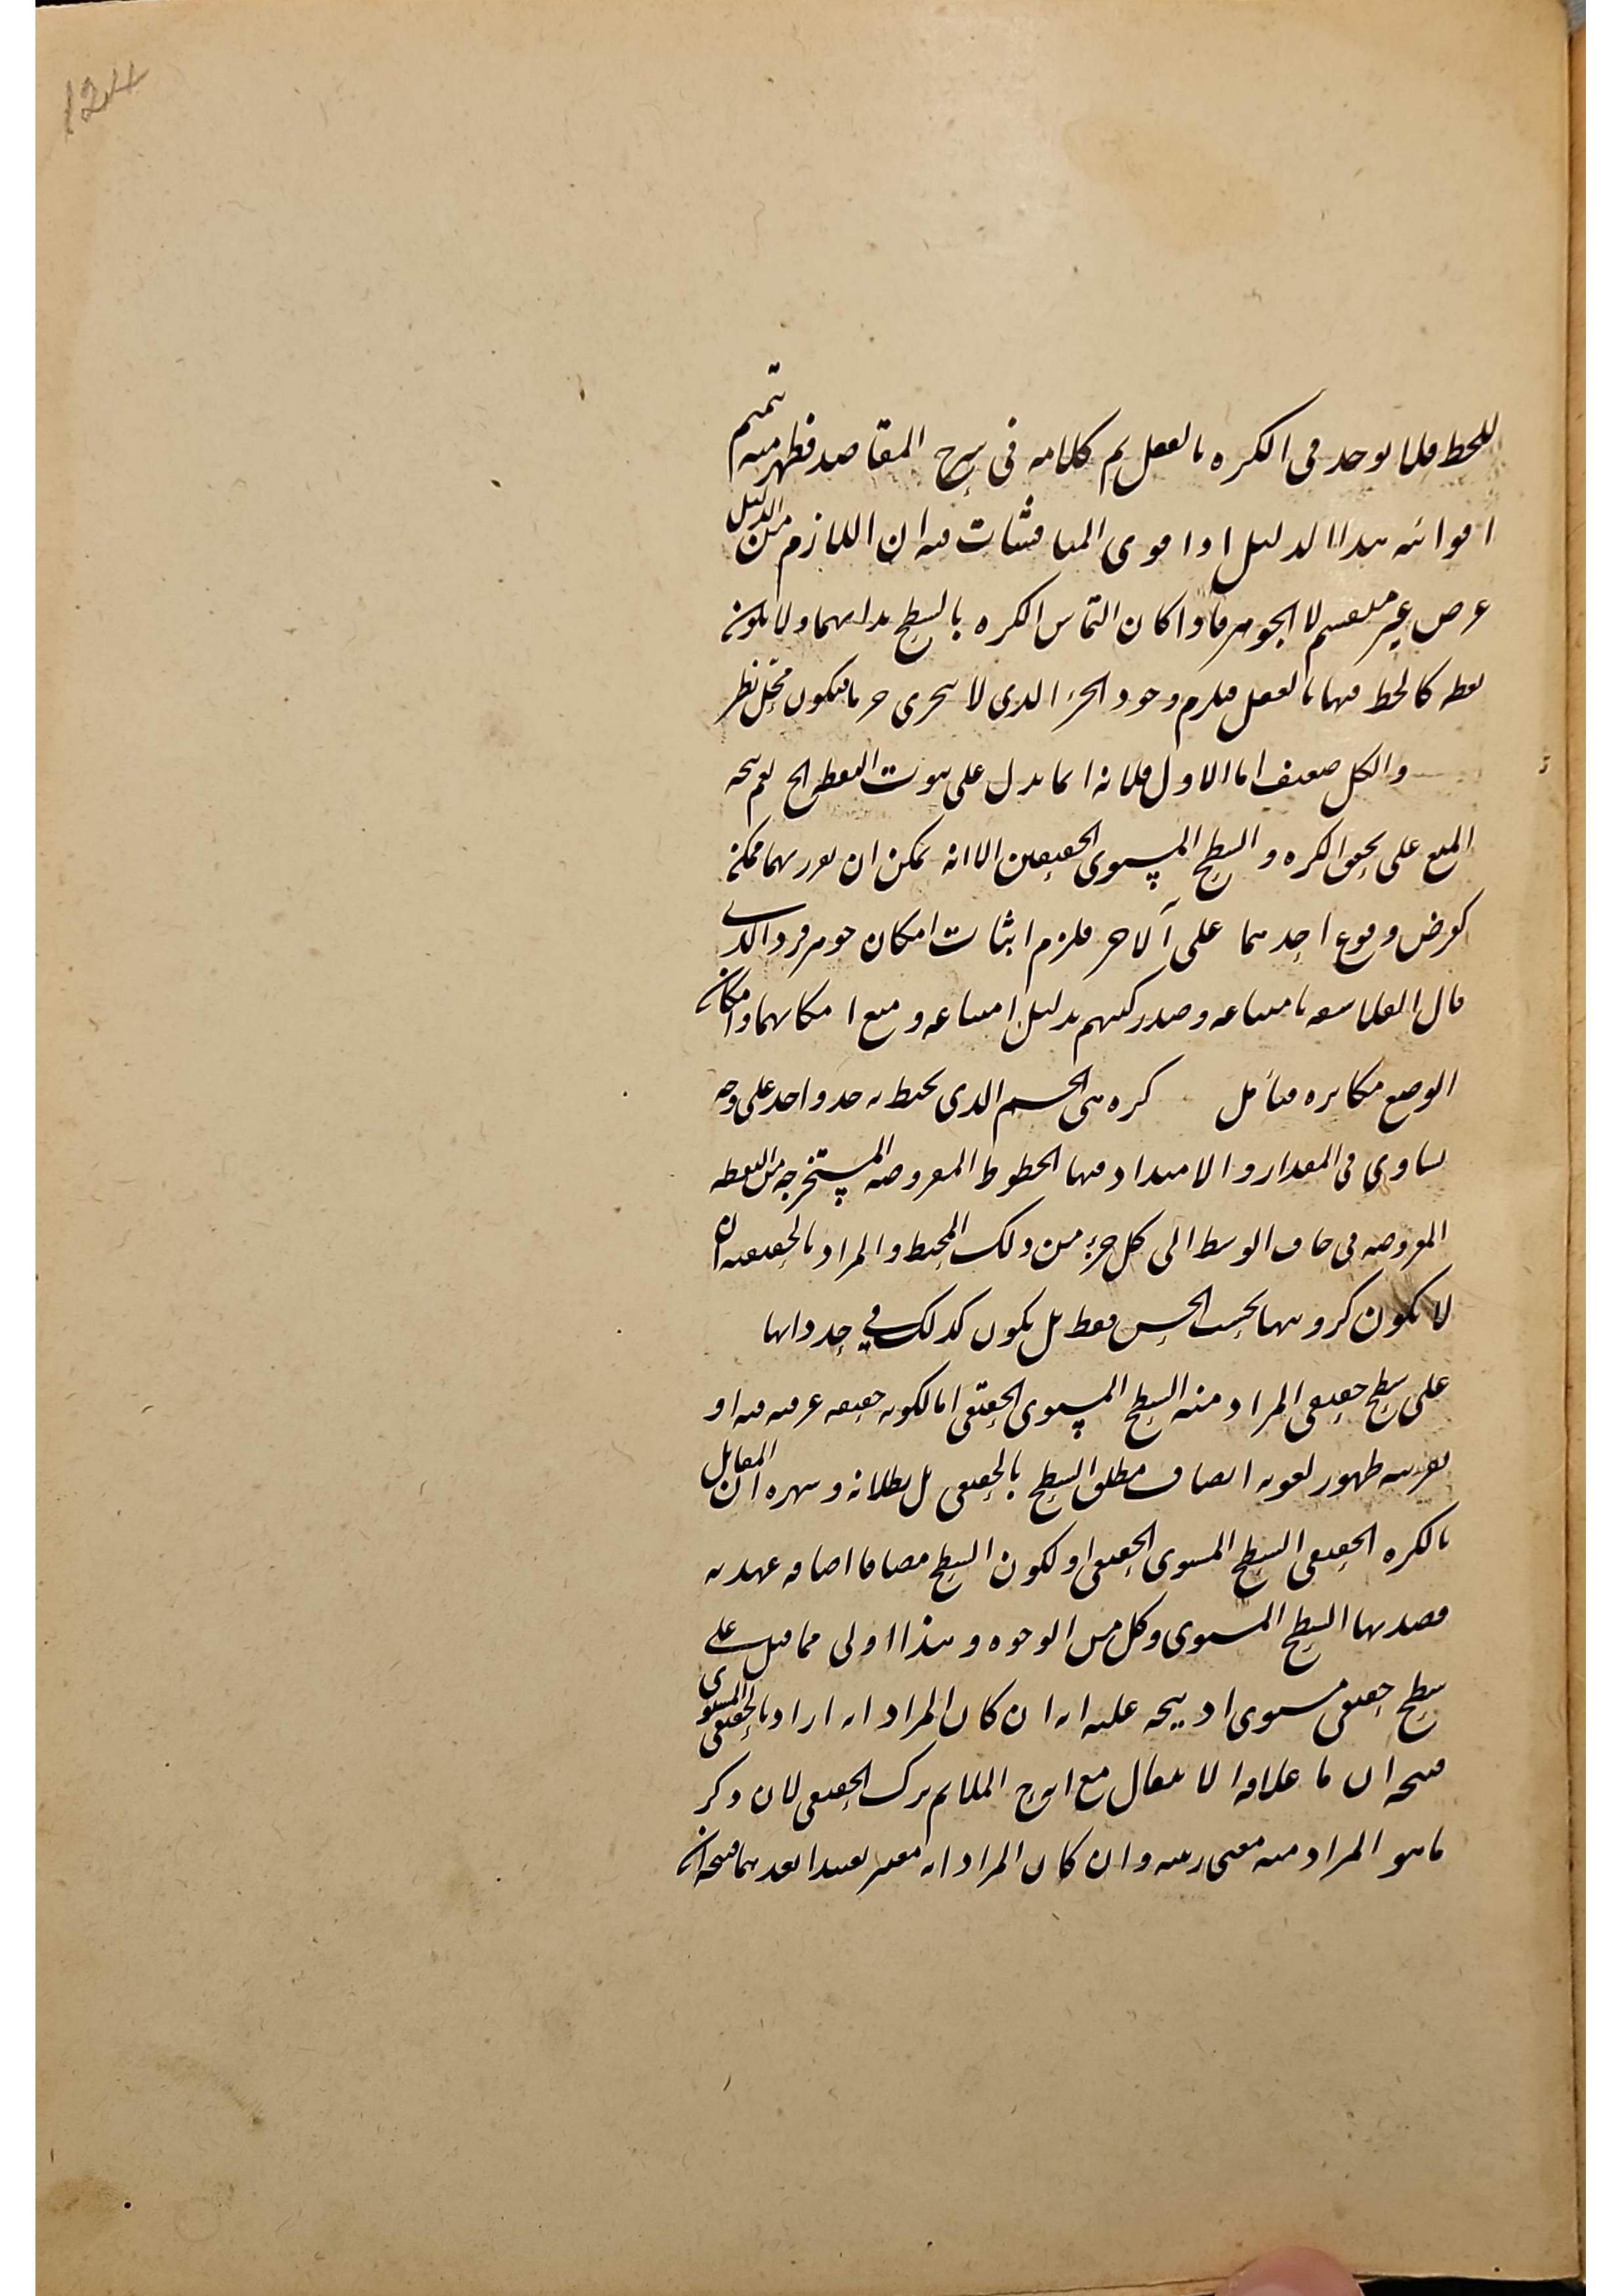 124
للخط فلا يوجد فى الكره بالفعل تم كلامه فى شرح المقاصد فظهر منه تتميم
اقوائيه هذا الدليل او اقوى المناقشات فيه ان اللازم من الدليل
عرض غير منقسم لا الجوهر فاذا كان التماس الكره بالسطح بذاتيهما ولا يكون
نقطه كالخط فيهما بالفعل فيلزم وجود الجزء الذى لا يتجزى جزما فيكون محل نظر
والكل ضعيف اما الاول فلانه انما يدل على ثبوت النقطه الخ نعم يتجه
المنع على تحقق الكره و السطح المستوى الحقيقيين الا انه يمكن ان
كفرض وقوع احدهما على الاخر فلزم اثبات امكان جوهر فرد الذى
قال الفلاسفه بامتناعه وصدر كتبهم بدليل امتناعه و منع امكانهما وامكان
الوضع مكابره فتأمل كره هى الجسم الذى يحيط به حد واحد على وجه
يساوى فى المقدار و الامتداد فيها الخطوط المفروضه المستخرجه من النقطه
المفروضه فى حاق الوسط الى كل جزء من ذلك المحيط والمراد بالحقيقيه ان
لا يكون كرويتها بحسب الحس فقط بل يكون كذلك فى حد ذاتها
على سطح حقيقى المراد منه السطح المستوى الحقيقى اما لكونه حقيقه عرفيه فيه او
بقرينه ظهور لغويه اتصاف مطلق السطح بالحقيقى بل بطلانه و شهره ان المقابل
بالكره الحقيقى السطح المستوى الحقيقى او لكون السطح مضافا اضافه عهديه
قصد بها السطح المستوى وكل من الوجوه و هذا اولى مما قيل على
سطح حقيقى مستوى اذ يتجه عليه انه ان كان المراد انه اراد بالحقيقى المستوى
فيتجه ان لا يقال مع اوج الملايم ترك الحقيقى لان ذكر
ما هو المراد منه معنى وان كان المراد انه فيتجه ان